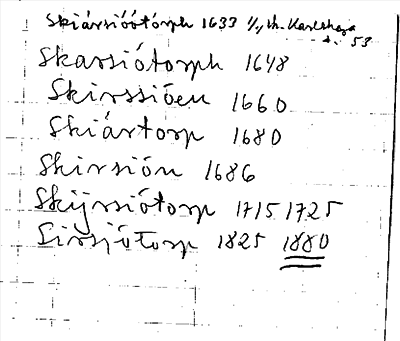 Skiärsiöötörph 1633 1/1 th. Karlskoga
s. 53
Skarsiötorph 1648
Skirssiöen 1660
Skiärtorp 1680
Skirsiön 1686
Skijrsiötorp 1715 1725
Sirsjötorp 1825 1880